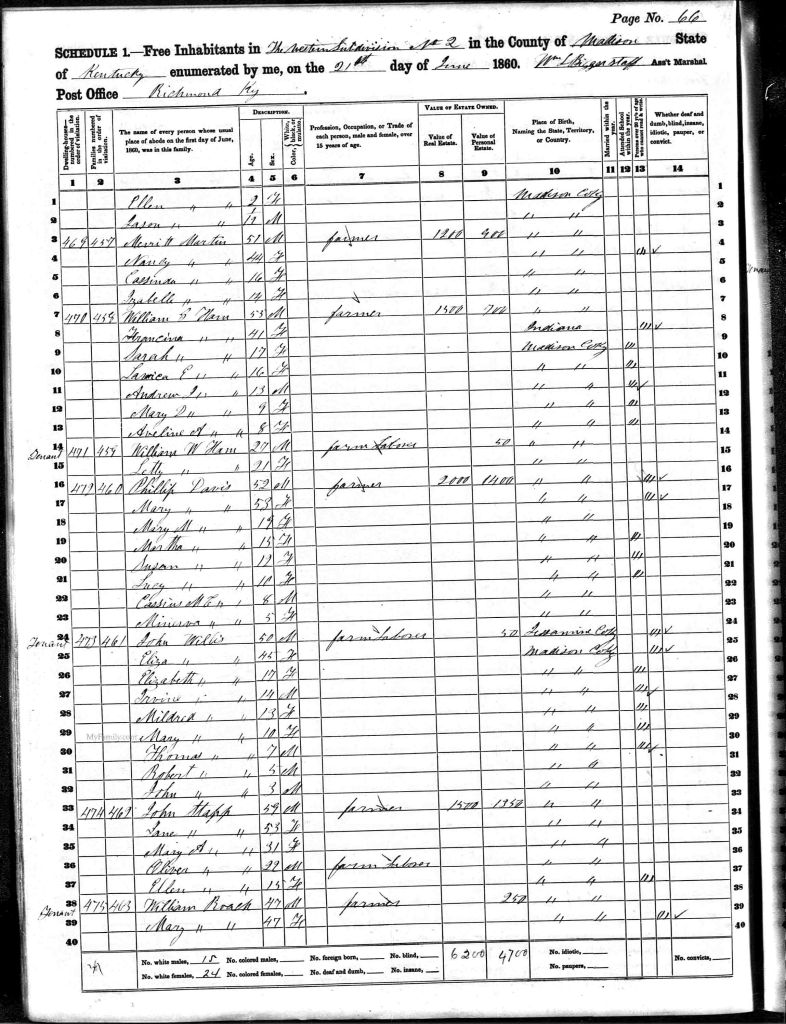 Page No. 66
SCHEDULE 1.—Free Inhabitants in The Western Subdivision No 2 in the County of Madison State
of Kentucky enumerated by me, on the 21st day of June 1860. Wm Ass't Marshal
Post Office Richmond Ky.
Dwelling-houses—numbered in the order of visitation.
Families numbered in the order of visitation.
The name of every person whose usual place of abode on the first day of June, 1860, was in this family.
DESCRIPTION.
Age.
Sex.
Color, White, black, or mulatto.
Profession, Occupation, or Trade of each person, male and female, over 15 years of age.
VALUE OF ESTATE OWNED.
Value of Real Estate.
Value of Personal Estate.
Place of Birth, Naming the State, Territory, or Country.
Married within the year.
Attended School within the year.
Persons over 20 years of age who cannot read & write.
Whether deaf and dumb, blind, insane, idiotic, pauper, or convict.
1 2 3 4 5 6 7 8 9 10 11 12 13 14
1 Ellen " " 2 F Madison Coty 1
2 Jason " " M " " 2
3 469 457 Merritt Martin 51 M farmer 1200 900 " " 3
4 Nancy " " 44 F " " 4
5 " " 16 F " " 5
6 Izabelle " " 14 F " " 6
7 470 458 William Ham 53 M farmer 1500 700 " " 7
8 Francina " " 41 F Indiana 8
9 Sarah " " 17 F Madison Coty 9
10 E " " 16 F " " 10
11 Andrew J " " 13 M " " 11
12 Mary D " " 9 F " " 12
13 Aveline A " " 8 F " " 13
Tenant 14 471 459 William W Ham 27 M farm Laborer 50 " " 14
15 Letty " " 21 F " " 15
16 472 460 Phillip Davis 52 M farmer 2000 1400 " " 16
17 Mary " " 53 F " " 17
18 Mary M " " 19 F " " 18
19 Martha " " 15 F " " 19
20 Susan " " 12 F " " 20
21 Lucy " " 10 F " " 21
22 Cassius M " " 8 M " " 22
23 Minerva " " 5 F " " 23
Tenant 24 473 461 John Willis 50 M farm Laborer 50 Jessamine Coty 24
25 Eliza " " 45 F Madison Coty 25
26 Elizabeth " " 17 F " " 26
27 Irvine " " 14 M " " 27
28 Mildred " " 13 F " " 28
29 Mary " " 10 F " " 29
30 Thomas " " 7 M " " 30
31 Robert " " 5 M " " 31
32 John " " 3 M " " 32
33 474 462 John 59 M farmer 1500 1350 " " 33
34 Jane " " 53 F " " 34
35 Mary A " " 31 F " " 35
36 Oliver " " 22 M farm Laborer " " 36
37 Ellen " " 15 F " " 37
Tenant 38 475 463 William Roach 47 M farmer 250 " " 38
39 Mary " " 47 F " " 39
40 40
No. white males, 15 No. colored males, No. foreign born, No. blind, 6200 4700 No. idiotic, No. convicts,
No. white females, 24 No. colored females, No. deaf and dumb, No. insane, No. paupers,
MyFamily.com